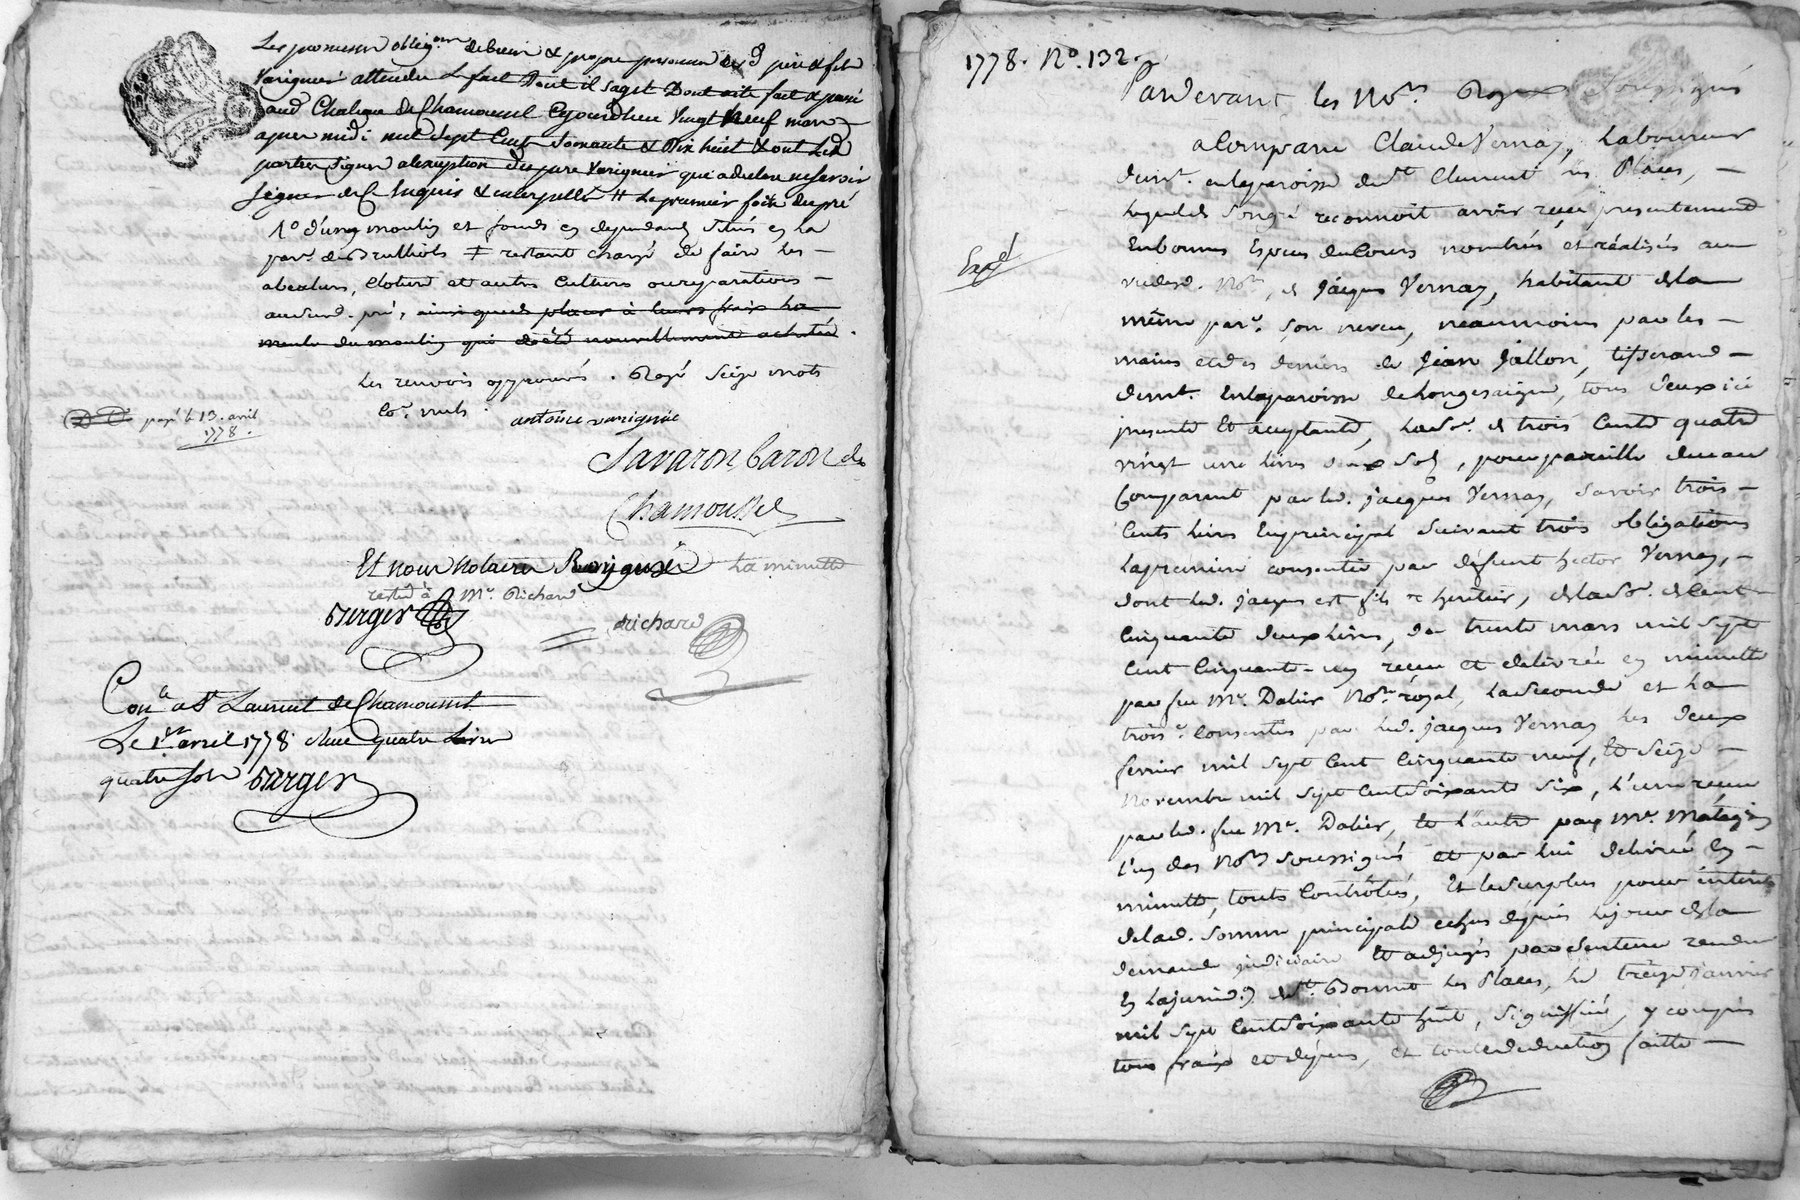 Les promesses obligons de biens & propre personne desd pere & fils
Varignier attendu le fait dont il sagit Dont acte fait & passé
aud Chateau de Chamousset Cejourdhui vingt neuf mars
apres midi mil sept Cent Soixante & Dix huit & ont Lesd
parties signé alexeption du pere Varignier qui a declare ne scavoir
signer de C Enquis & interpellé # Le premier faitte du pré
1º d'un moulin et fonds en dependants situés en la
parr. de Brulliols ‡ restant chargé de faire les
, cloture et autres Cultures ou reparations
audesd. pré, ainsi que de placer à leurs fraix la
meule du moulin qui a été nouvellement achetée.
Les renvois approuvés. Rayé Seize mots
Co. nuls.
payé le 13. avril
1778.
antoine varignié
Savaron Baron de
Chamousset
Et nous Notaires Royaux La minutte
restée à Mr. Richard
Berger
Richard
Conle a St Laurent de Chamousset
Le 1er avril 1778 Reçu quatre Livres
quatre sols Berger
1778. Nº. 132.
Pardevant les Nores. Royaux Soussignés
a Comparu Claude Vernay, Laboureur
demt. en la paroisse de St Clement les Places,
Lequel de Son gré reconnoit avoir reçu presentement
En bonnes Especes de Cours nombrées et réalisées au
vu desd. Nores, de jacques Vernay, habitant de la
Expé
même parr. Son neveu, neanmoins par les
mains et des deniers de jean jallon, tisserand
demt. En la paroisse de Longesaigne, tous deux ici
presents et acceptants, La Some. de trois Cents quatre
vingt une livres deux Sols, pour pareille due au
Comparant par led. jacques Vernay, savoir trois
Cents livres En principal Suivant trois obligations
La premiere consentie par défunt hector Vernay,
dont led. jacques est fils & heritier, de la Se. de Cent
Cinquante deux livres, du trente mars mil sept
Cent Cinquante-un reçue et delivrée en minutte
par feu Me. Dalier Nore. royal, La Seconde et La
troise. Consenties par led. jacques Vernay les deux
fevrier mil sept Cent Cinquante neuf, & Seize
Novembre mil Sept Cent Soixante Six, L'une reçue
par led. feu Me. Dalier, & L'autre par Me.
L'un des Nores soussignés et par lui delivrée En
minutte, touts Contrôlées, Et le Surplus pour intérêts
de lad. Somme principale echus depuis le jour de la
demande judiciaire Et adjugés par Sentence rendue
En la jurid.on de St. Bonnet Les Places, Le treize janvier
mil Sept Cent Soixante huit, Signiffiée, y compris
tous fraix et dépens, et toute deduction faitte